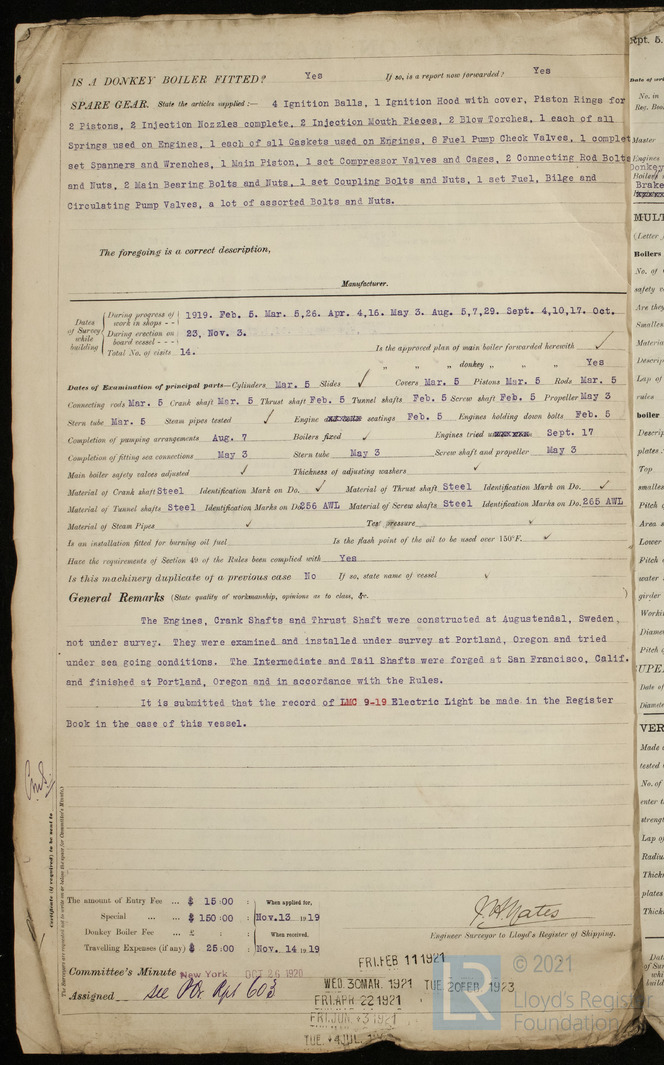 IS A DONKEY BOILER FITTED? Yes If so, is a report now forwarded? Yes
SPARE GEAR. State the articles supplied:— 4 Ignition Balls, 1 Ignition Hood with cover, Piston Rings for
2 Pistons, 2 Injection Nozzles complete, 2 Injection Mouth Pieces, 2 Blow Torches, 1 each of all
Springs used on Engines, 1 each of all Gaskets used on Engines, 6 Fuel Pump Check Valves, 1 complet
set Spanners and Wrenches, 1 Main Piston, 1 set Compressor Valves and Cages, 2 Connecting Rod Bolts
and Nuts, 2 Main Bearing Bolts and Nuts, 1 set Coupling Bolts and Nuts, 1 set Fuel, Bilge and
Circulating Pump Valves, a lot of assorted Bolts and Nuts.
The foregoing is a correct description,
Manufacturer.
Dates of Survey while building
During progress of work in shops - - 1919. Feb. 5. Mar. 5,26. Apr. 4,16. May 3. Aug. 5,7,29. Sept. 4,10,17. Oct.
During erection on board vessel - - - 23, Nov. 3.
Total No. of visits 14.
Is the approved plan of main boiler forwarded herewith ✓
" " " donkey " " " Yes
Dates of Examination of principal parts—Cylinders Mar. 5 Slides ✓ Covers Mar. 5 Pistons Mar. 5 Rods Mar. 5
Connecting rods Mar. 5 Crank shaft Mar. 5 Thrust shaft Feb. 5 Tunnel shafts Feb. 5 Screw shaft Feb. 5 Propeller May 3
Stern tube Mar. 5 Steam pipes tested ✓ Engine seatings Feb. 5 Engines holding down bolts Feb. 5
Completion of pumping arrangements Aug. 7 Boilers fixed ✓ Engines tried Sept. 17
Completion of fitting sea connections May 3 Stern tube May 3 Screw shaft and propeller May 3
Main boiler safety valves adjusted ✓ Thickness of adjusting washers ✓
Material of Crank shaft Steel Identification Mark on Do. ✓ Material of Thrust shaft Steel Identification Mark on Do. ✓
Material of Tunnel shafts Steel Identification Marks on Do. 256 AWL Material of Screw shafts Steel Identification Marks on Do. 265 AWL
Material of Steam Pipes ✓ Test pressure ✓
Is an installation fitted for burning oil fuel Is the flash point of the oil to be used over 150°F. ✓
Have the requirements of Section 49 of the Rules been complied with Yes
Is this machinery duplicate of a previous case No If so, state name of vessel ✓
General Remarks (State quality of workmanship, opinions as to class, &c.
The Engines, Crank Shafts and Thrust Shaft were constructed at Augustendal, Sweden,
not under survey. They were examined and installed under survey at Portland, Oregon and tried
under sea going conditions. The Intermediate and Tail Shafts were forged at San Francisco, Calif.
and finished at Portland, Oregon and in accordance with the Rules.
It is submitted that the record of LMC 9-19 Electric Light be made in the Register
Book in the case of this vessel.
Certificate (if required) to be sent to
The amount of Entry Fee ... $ 15:00 : When applied for,
Special ... ... $ 150:00 : Nov.13 1919
Donkey Boiler Fee ... £ : : When received,
Travelling Expenses (if any) $ 25:00 : Nov. 14 1919
Engineer Surveyor to Lloyd's Register of Shipping.
Committee's Minute New York OCT 26 1920
Assigned see
FRI. FEB 11 1921
WED. 30 MAR. 1921 TUE 20 FEB. 1923
FRI. APR 22 1921
© 2021
Lloyd's Register
Foundation
LR
Rpt. 5.
No. in
Reg. Boo
Master
Engines
Donkey
Boilers
Brake
MULT
(Letter
Boilers
No. of
safety v
Are they
Smalles
Materia
Descrip
Lap of
rules
boiler
Descrip
plates.
Top
smalles
Pitch o
Area
Lower
Pitch
water
girder
Workin
Diame
Pitch o
UPE
Date of
Diamete
VER
Made
tested
No. of
enter t
strengt
Lap o
Radiu
Thickn
plates
Thick